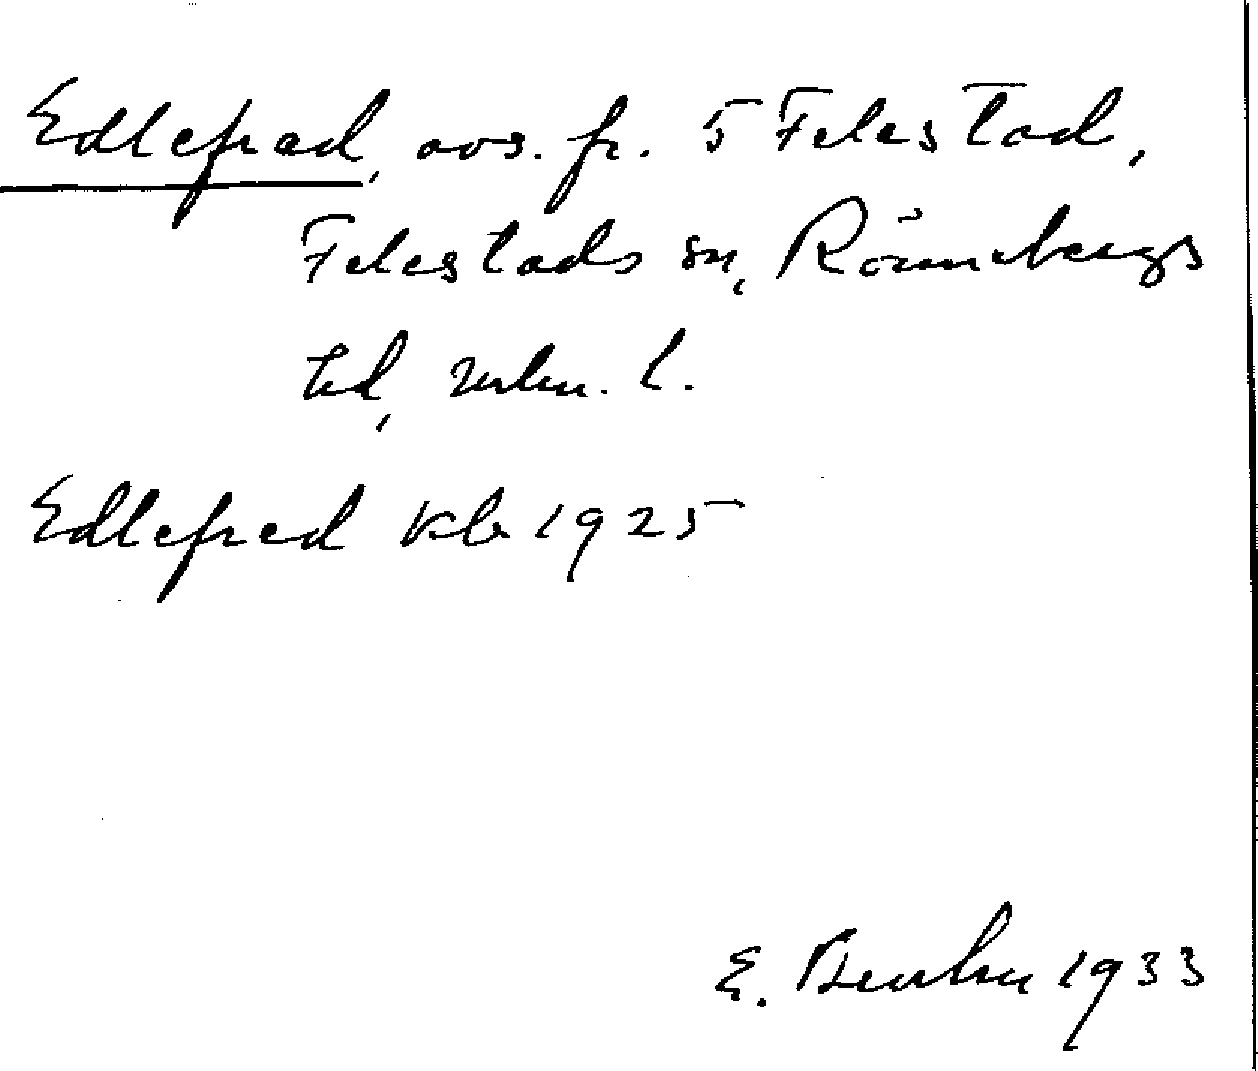 Edlefred, avs. fr. 5 Felestad,
Felestads sn, Rönnebergs
hd, Mlm. l.
Edlefred Kb 1925
E. Benson 1933